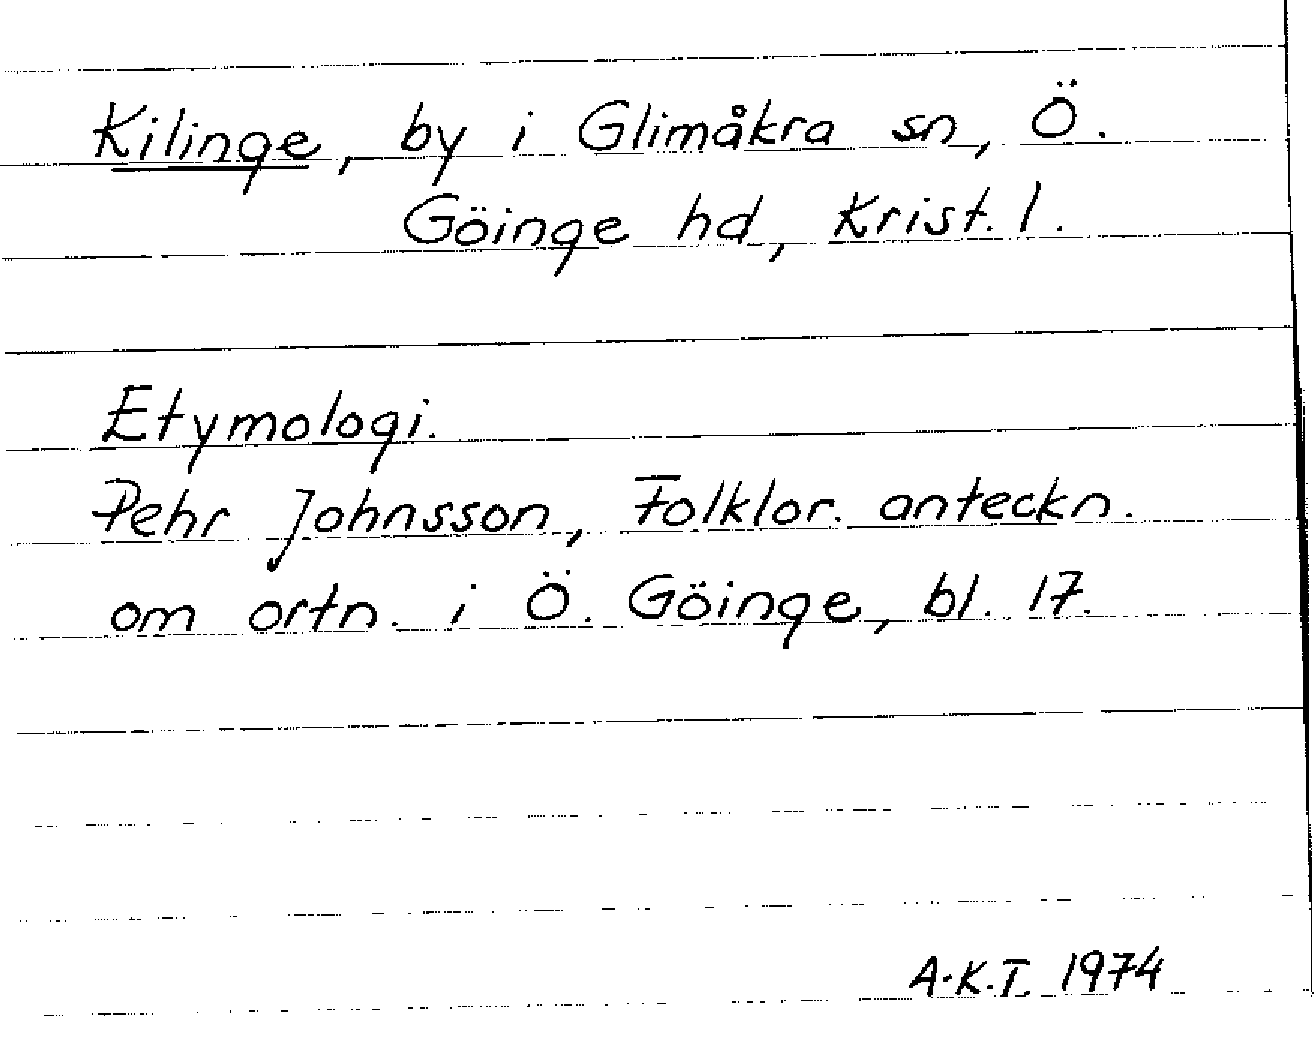 Kilinge, by i Glimåkra sn, Ö.
Göinge hd, Krist. l.
Etymologi.
Pehr Johnsson, Folklor. anteckn.
om ortn. i Ö. Göinge, bl. 17.
A.K.T. 1974